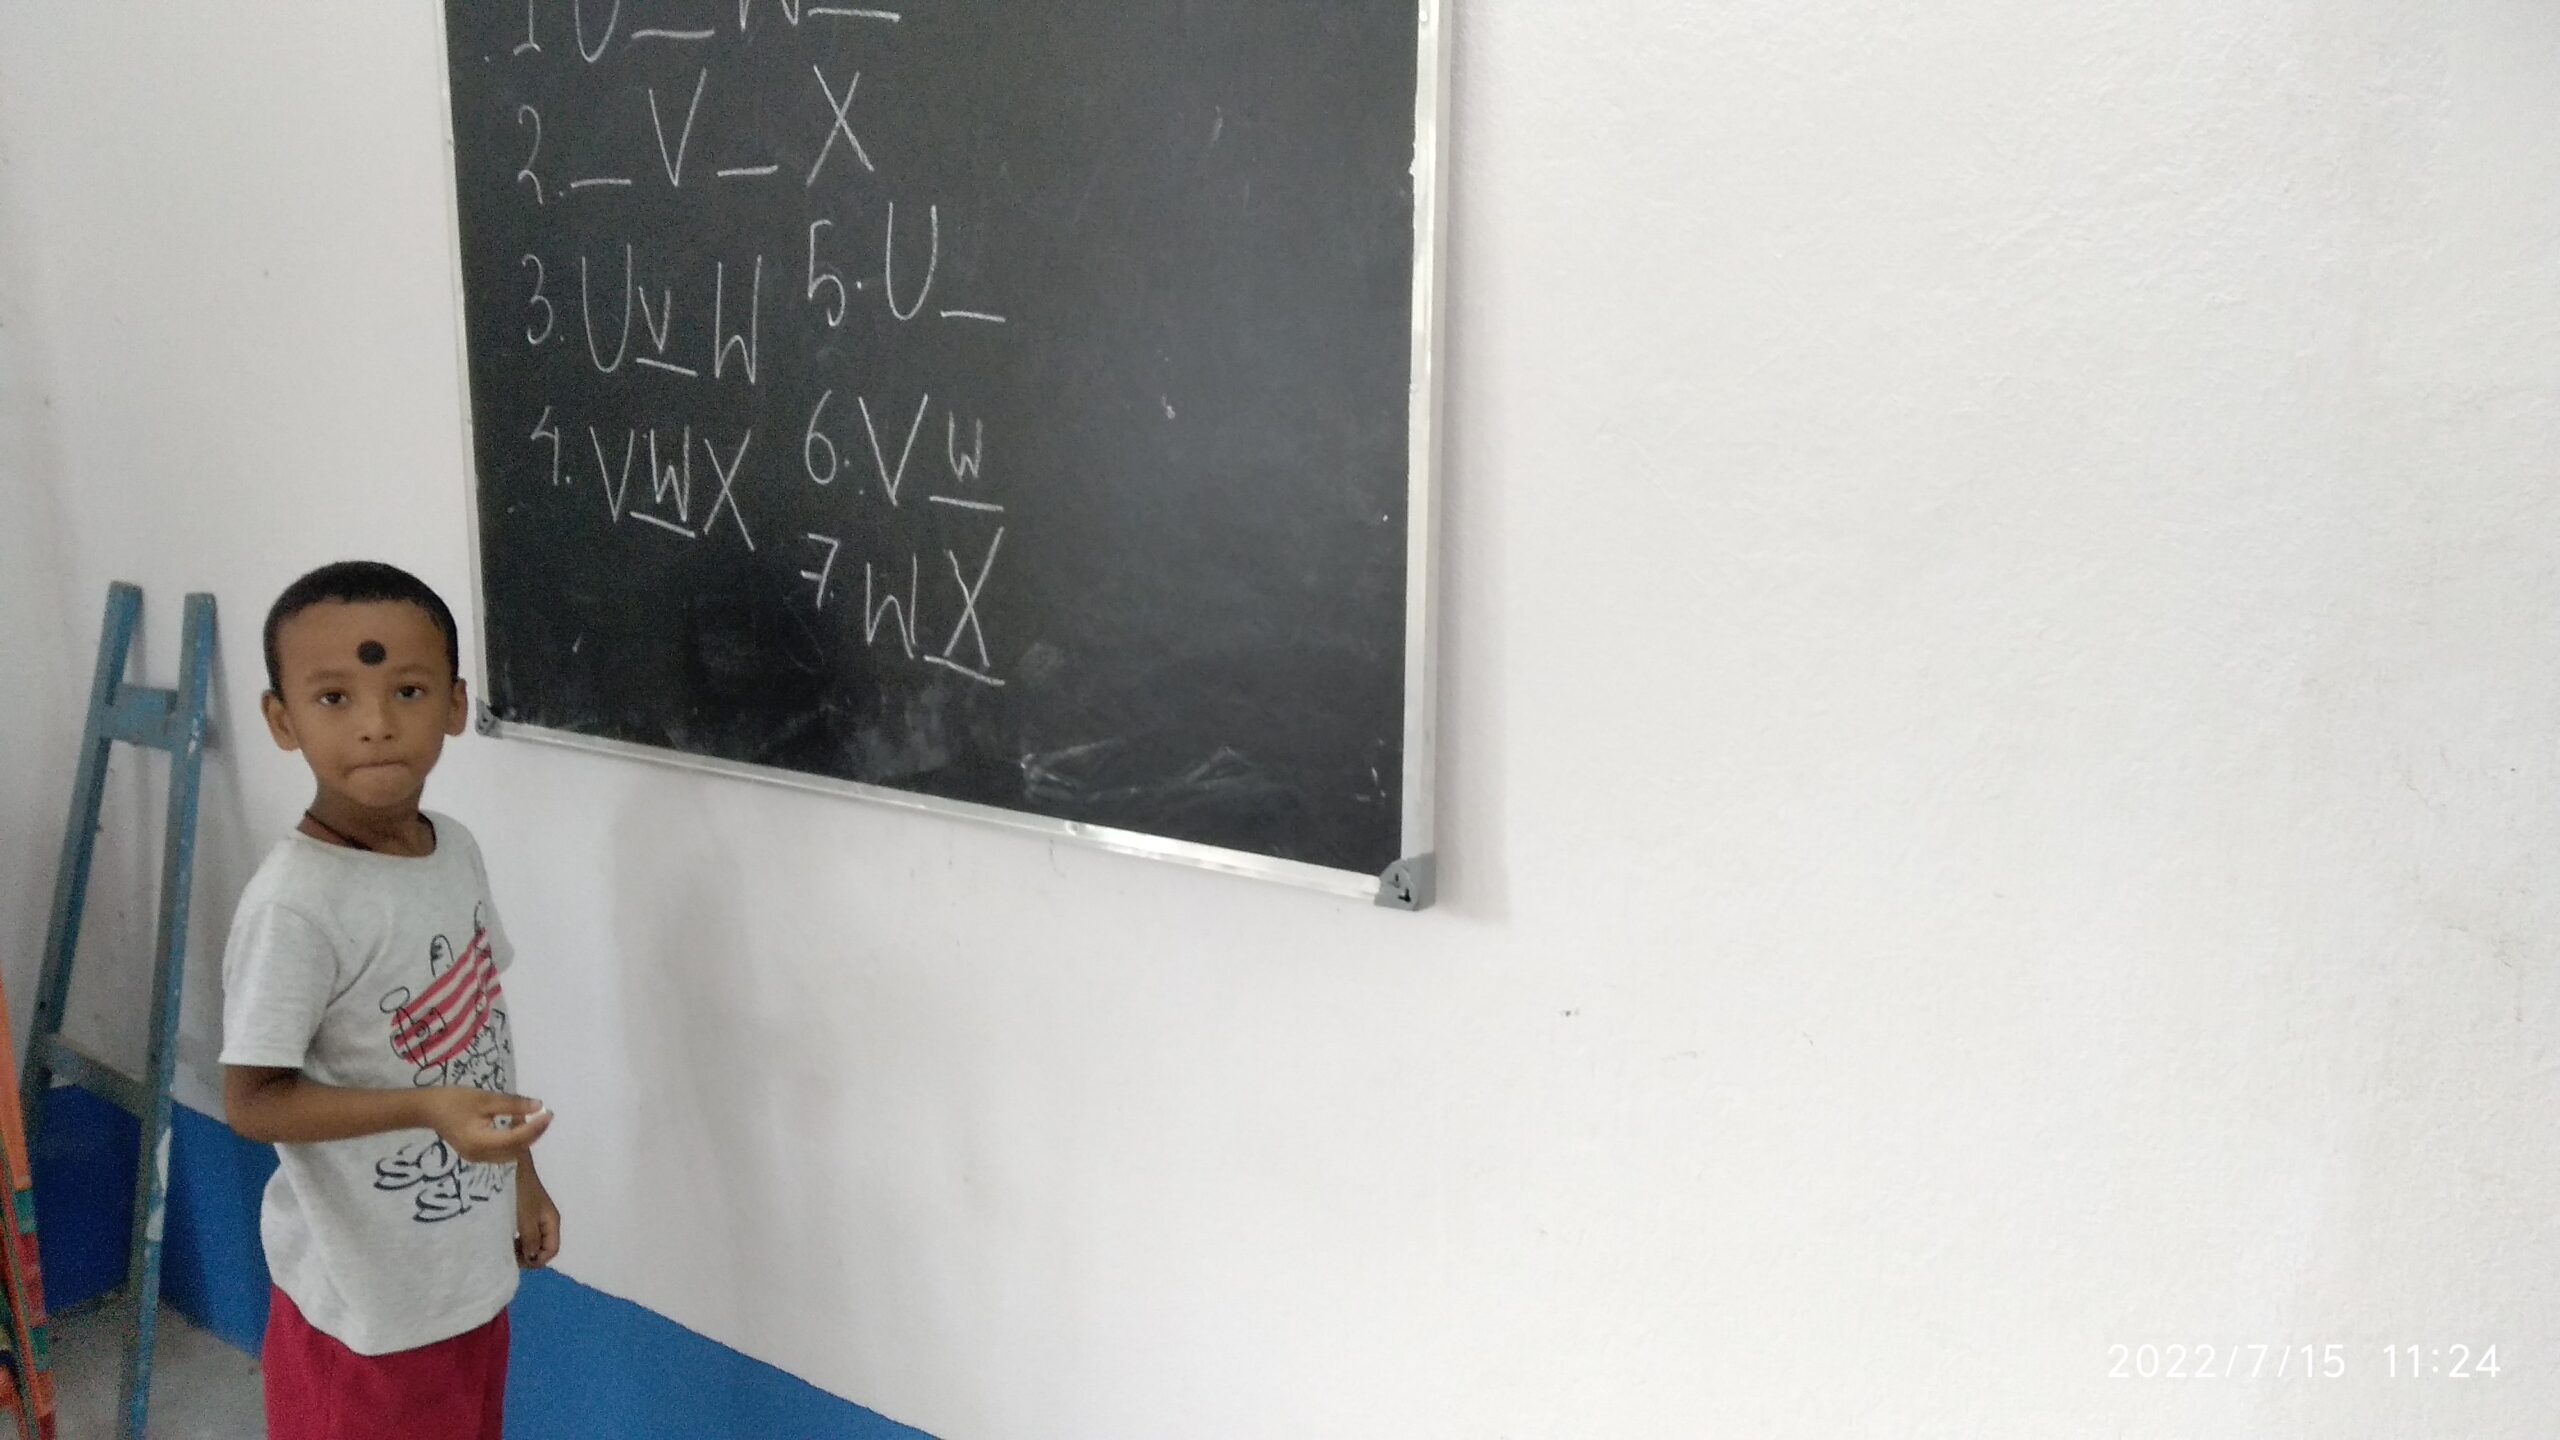 1 U _ W _
2. _ V _ X
3. U V W
4. V W X
5. U _
6. V W
7. W X
2022/7/15 11:24